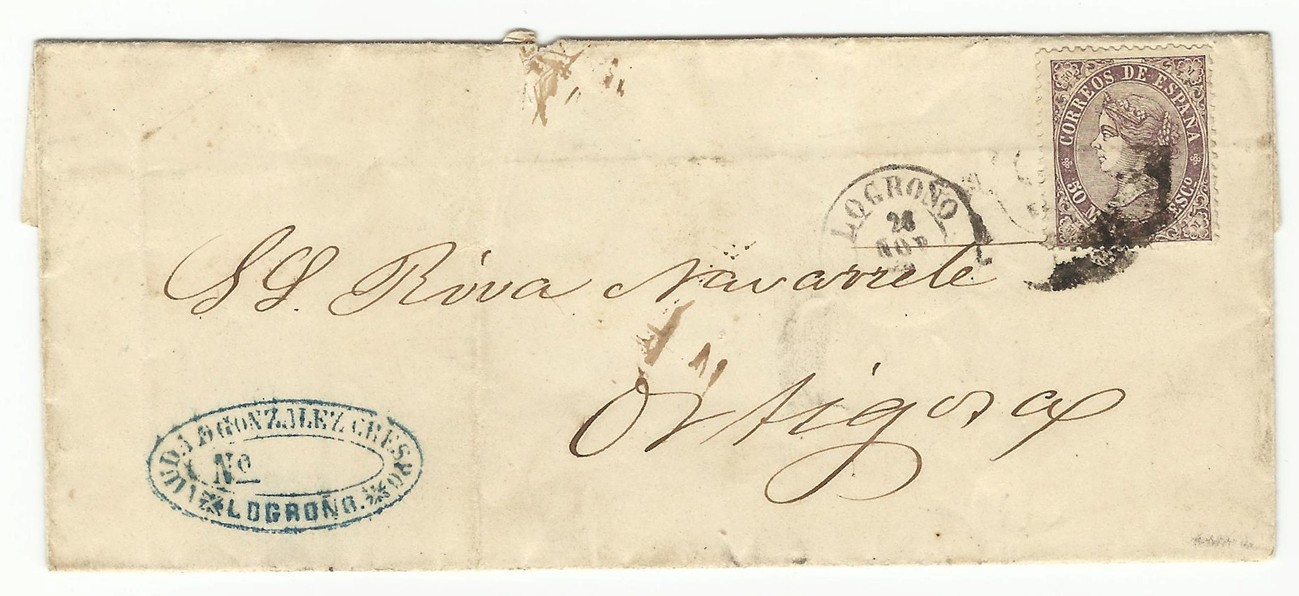 CORREOS DE ESPAÑA
50 M
ESCº
LOGROÑO
26
NOV
SS Riva Navarrete
Ortigosa
VIUDA DE GONZALEZ CRESPO
No
LOGROÑO.